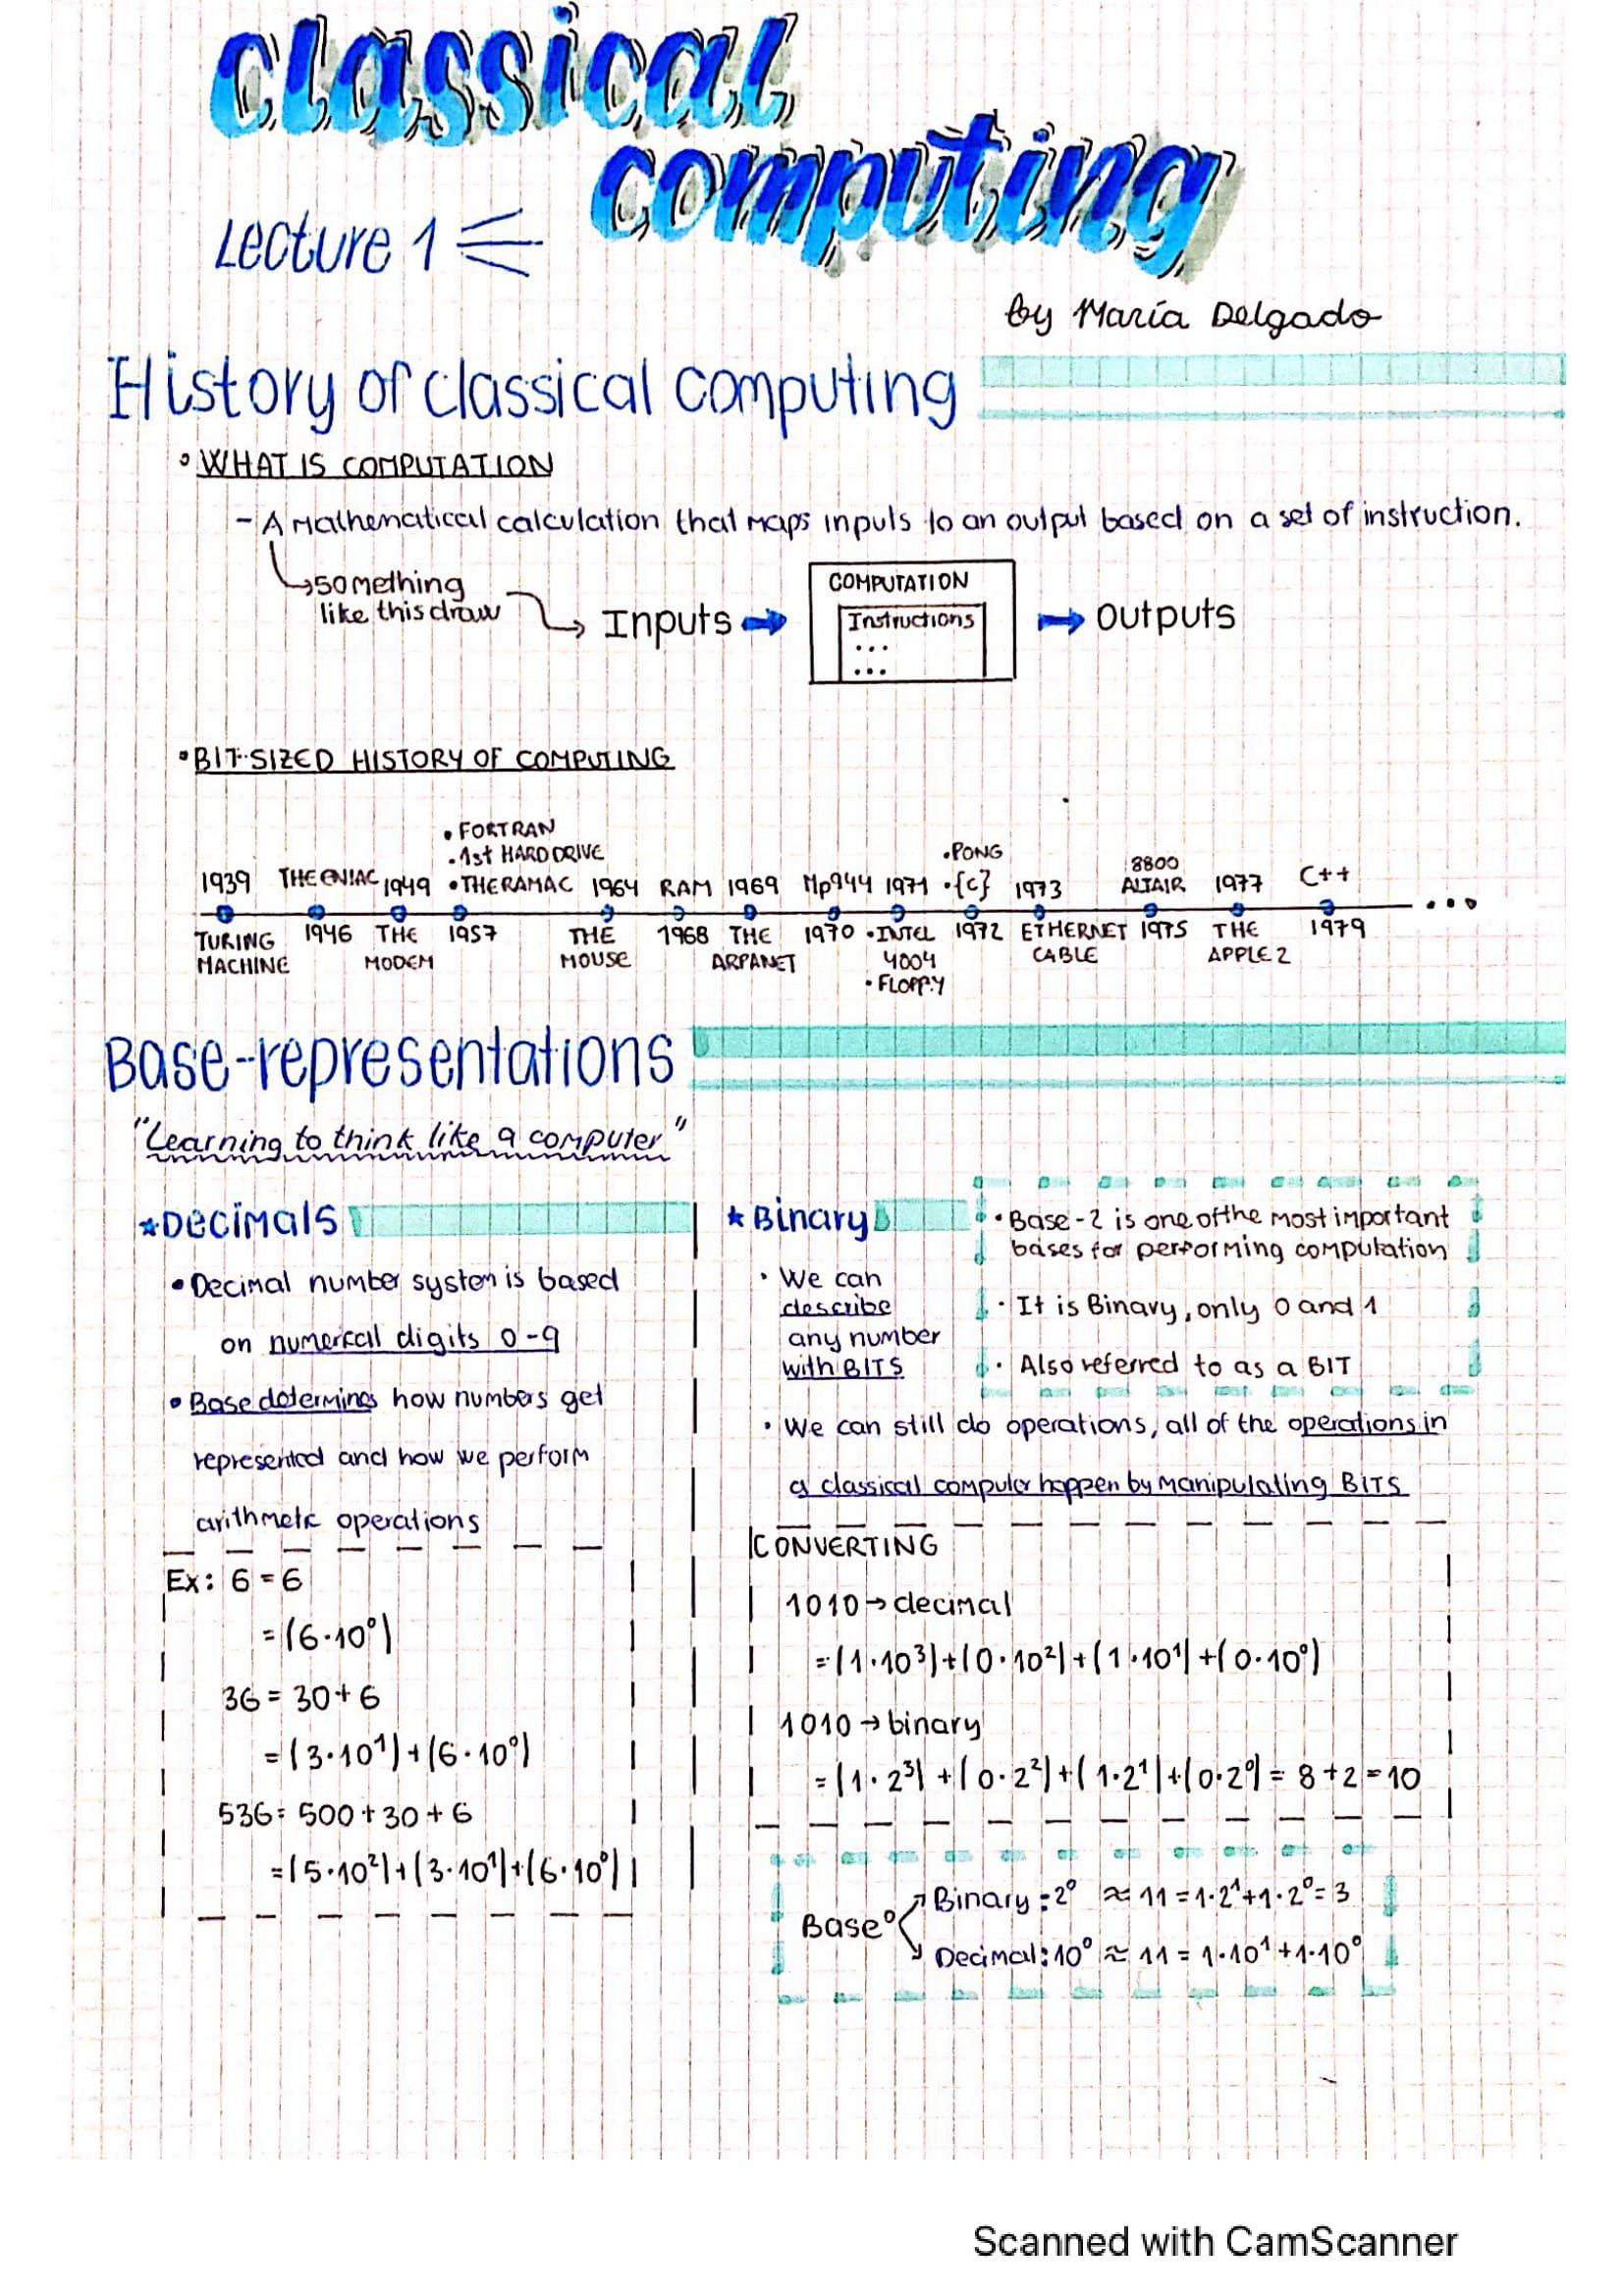 classical
computing
Lecture 1
by María Delgado
History of classical computing
• WHAT IS COMPUTATION
- A Mathematical calculation that maps inputs to an output based on a set of instruction.
something
like this draw
Inputs
COMPUTATION
Instructions
...
...
outputs
• BIT-SIZED HISTORY OF COMPUTING
• FORTRAN
• 1st HARD DRIVE
• THE RAMAC
1939
TURING
MACHINE
THE ENIAC
1946
1949
THE
MODEM
1957
1964
THE
MOUSE
RAM
1968
1969
THE
ARPANET
Mp944
1970
1971
• INTEL
4004
• FLOPPY
• PONG
• {C}
1972
1973
ETHERNET
CABLE
8800
ALTAIR
1975
1977
THE
APPLE 2
C++
1979
...
Base-representations
"Learning to think like a computer"
★Decimals
• Decimal number system is based
on numercal digits 0-9
• Base determines how numbers get
represented and how we perform
arithmetic operations
Ex: 6 = 6
= (6·10⁰)
36 = 30 + 6
= (3·10¹) + (6·10⁰)
536 = 500 + 30 + 6
= (5·10²) + (3·10¹) + (6·10⁰)
★Binary
• We can
describe
any number
with BITS
• Base-2 is one of the most important
bases for performing computation
• It is Binary, only 0 and 1
• Also referred to as a BIT
• We can still do operations, all of the operations in
a classical computer happen by manipulating BITS
CONVERTING
1010 → decimal
= (1·10³) + (0·10²) + (1·10¹) + (0·10⁰)
1010 → binary
= (1·2³) + (0·2²) + (1·2¹) + (0·2⁰) = 8 + 2 = 10
Base⁰
Binary: 2⁰ ≈ 11 = 1·2¹ + 1·2⁰ = 3
Decimal: 10⁰ ≈ 11 = 1·10¹ + 1·10⁰
Scanned with CamScanner